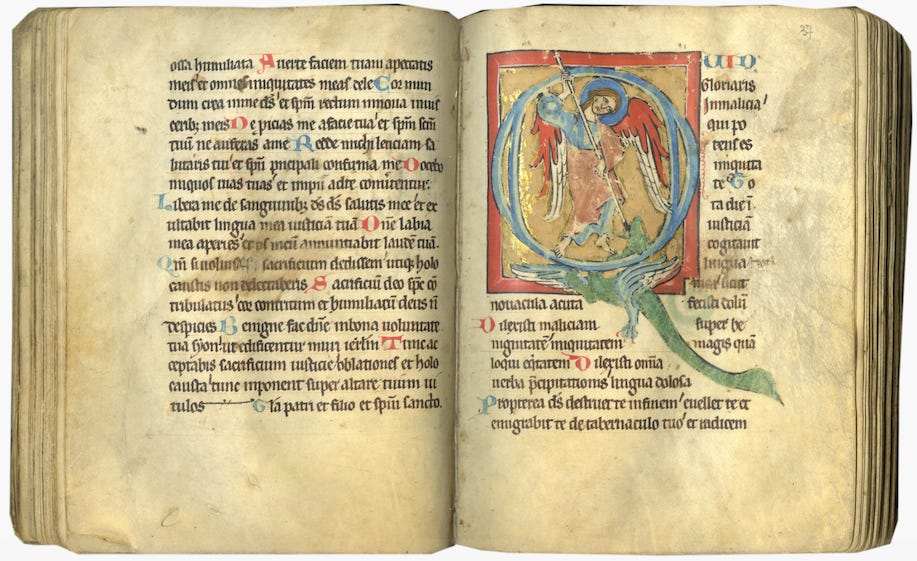 ossa humiliata Auerte faciem tuam apeccatis
meis et omnes iniquitates meas dele Cor mun
dum crea inme ds et spm rectum innoua inuis
cerib; meis Ne picias me afacie tua et spm scm
tuum ne auferas ame Redde michi leticiam sa
lutaris tui et spm pncipali confirma me Docebo
iniquos uias tuas et impii adte conuertentur:
Libera me de sanguinib; ds ds salutis mee et ex
ultabit lingua mea iusticiā tuā Dne labia
mea aperies et os meū annuntiabit laudē tuā.
Qm si uoluisses sacrificium dedissem utiq; holo
caustis non delectaberis Sacrificiū deo sps cō
tribulatus cor contritum et humiliatū deus n̄
despicies Benigne fac dn̄e inbona uoluntate
tua syon ut edificentur muri ierlm Tunc ac
ceptabis sacrificium iusticie oblationes et holo
causta tunc inponent super altare tuum ui
tulos Gla patri et filio et spiui sancto.
37
QUID
Gloriaris
Inmalicia
qui po
tens es
iniquita
te To
ta die ī
iusticiā
cogitauit
lingua
sicut
nouacula acuta
fecisti dolū
Dilexisti maliciam
super be
nignitatē iniquitatem
magis quā
loqui eq̄tatem Dilexisti om̄ia
uerba p̄cipitationis lingua dolosa
Propterea ds destruet te infinem euellet te et
emigrabit te de tabernaculo tuo et radicem